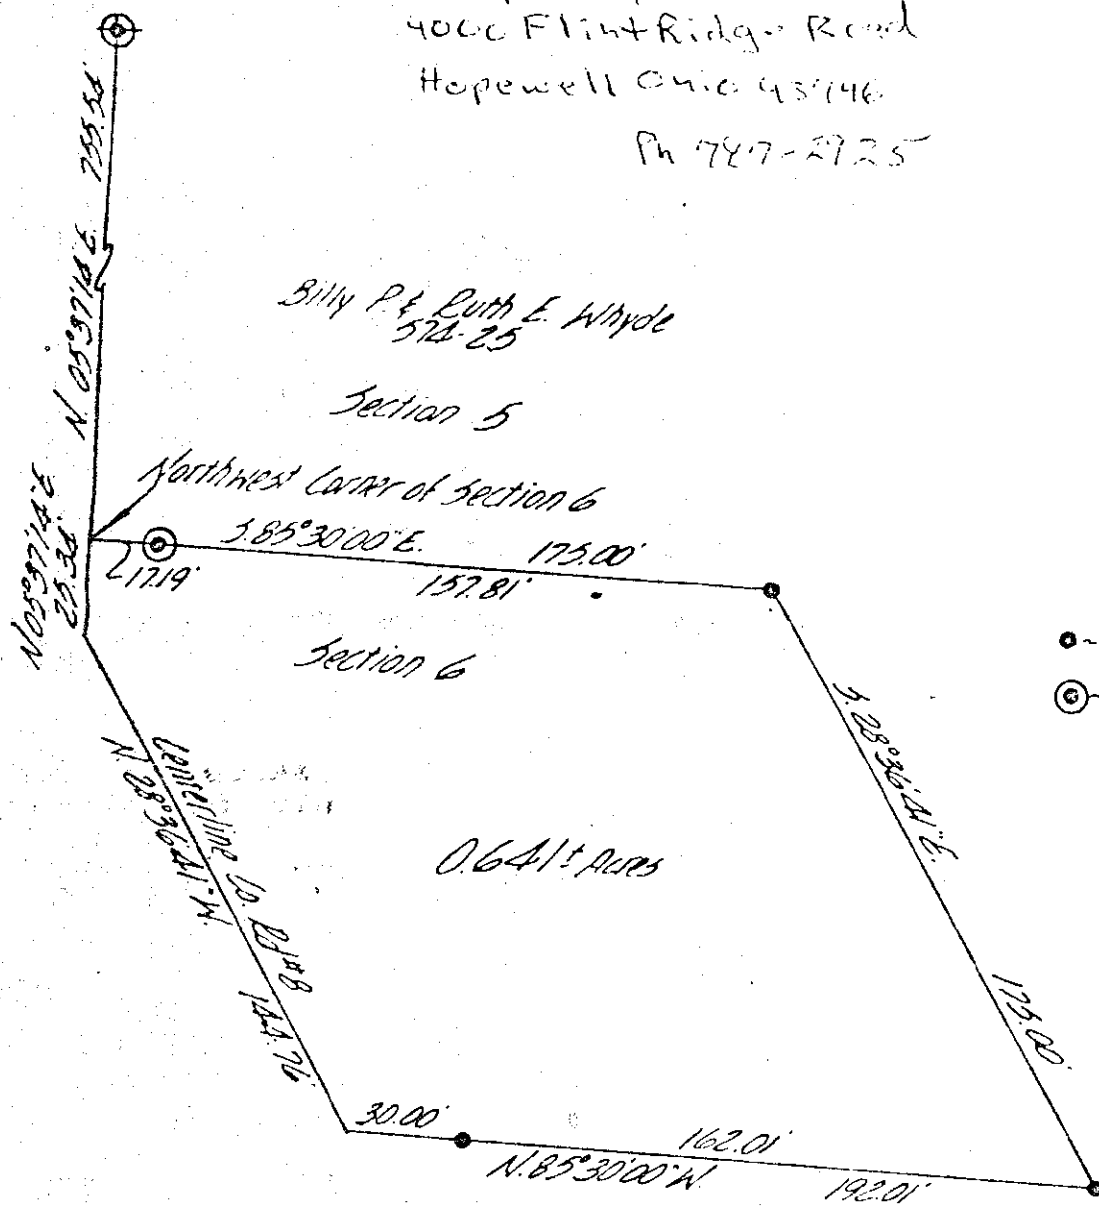 4000 Flint Ridge Road
Hopewell Ohio 43746
Ph 787-2925
755.54'
N. 05°37'14" E.
Billy P. & Ruth E. Whyde
574-25
Section 5
Northwest Corner of Section 6
N. 05°37'14" E.
25.34'
17.19'
S. 85°30'00" E.
175.00'
157.81'
Section 6
S. 28°36'41" E.
175.00'
Centerline Co. Rd #8
N. 28°36'41" W.
144.76'
0.641± Acres
30.00'
162.01'
N. 85°30'00" W.
192.01'